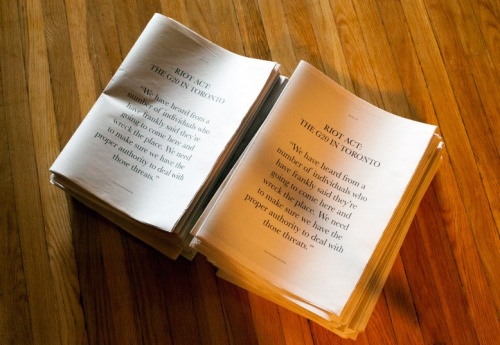 RIOT ACT:
THE G20 IN TORONTO
"We have heard from a
number of individuals who
have frankly said they're
going to come here and
wreck the place. We need
to make sure we have the
proper authority to deal with
those threats."
RIOT ACT:
THE G20 IN TORONTO
"We have heard from a
number of individuals who
have frankly said they're
going to come here and
wreck the place. We need
to make sure we have the
proper authority to deal with
those threats."